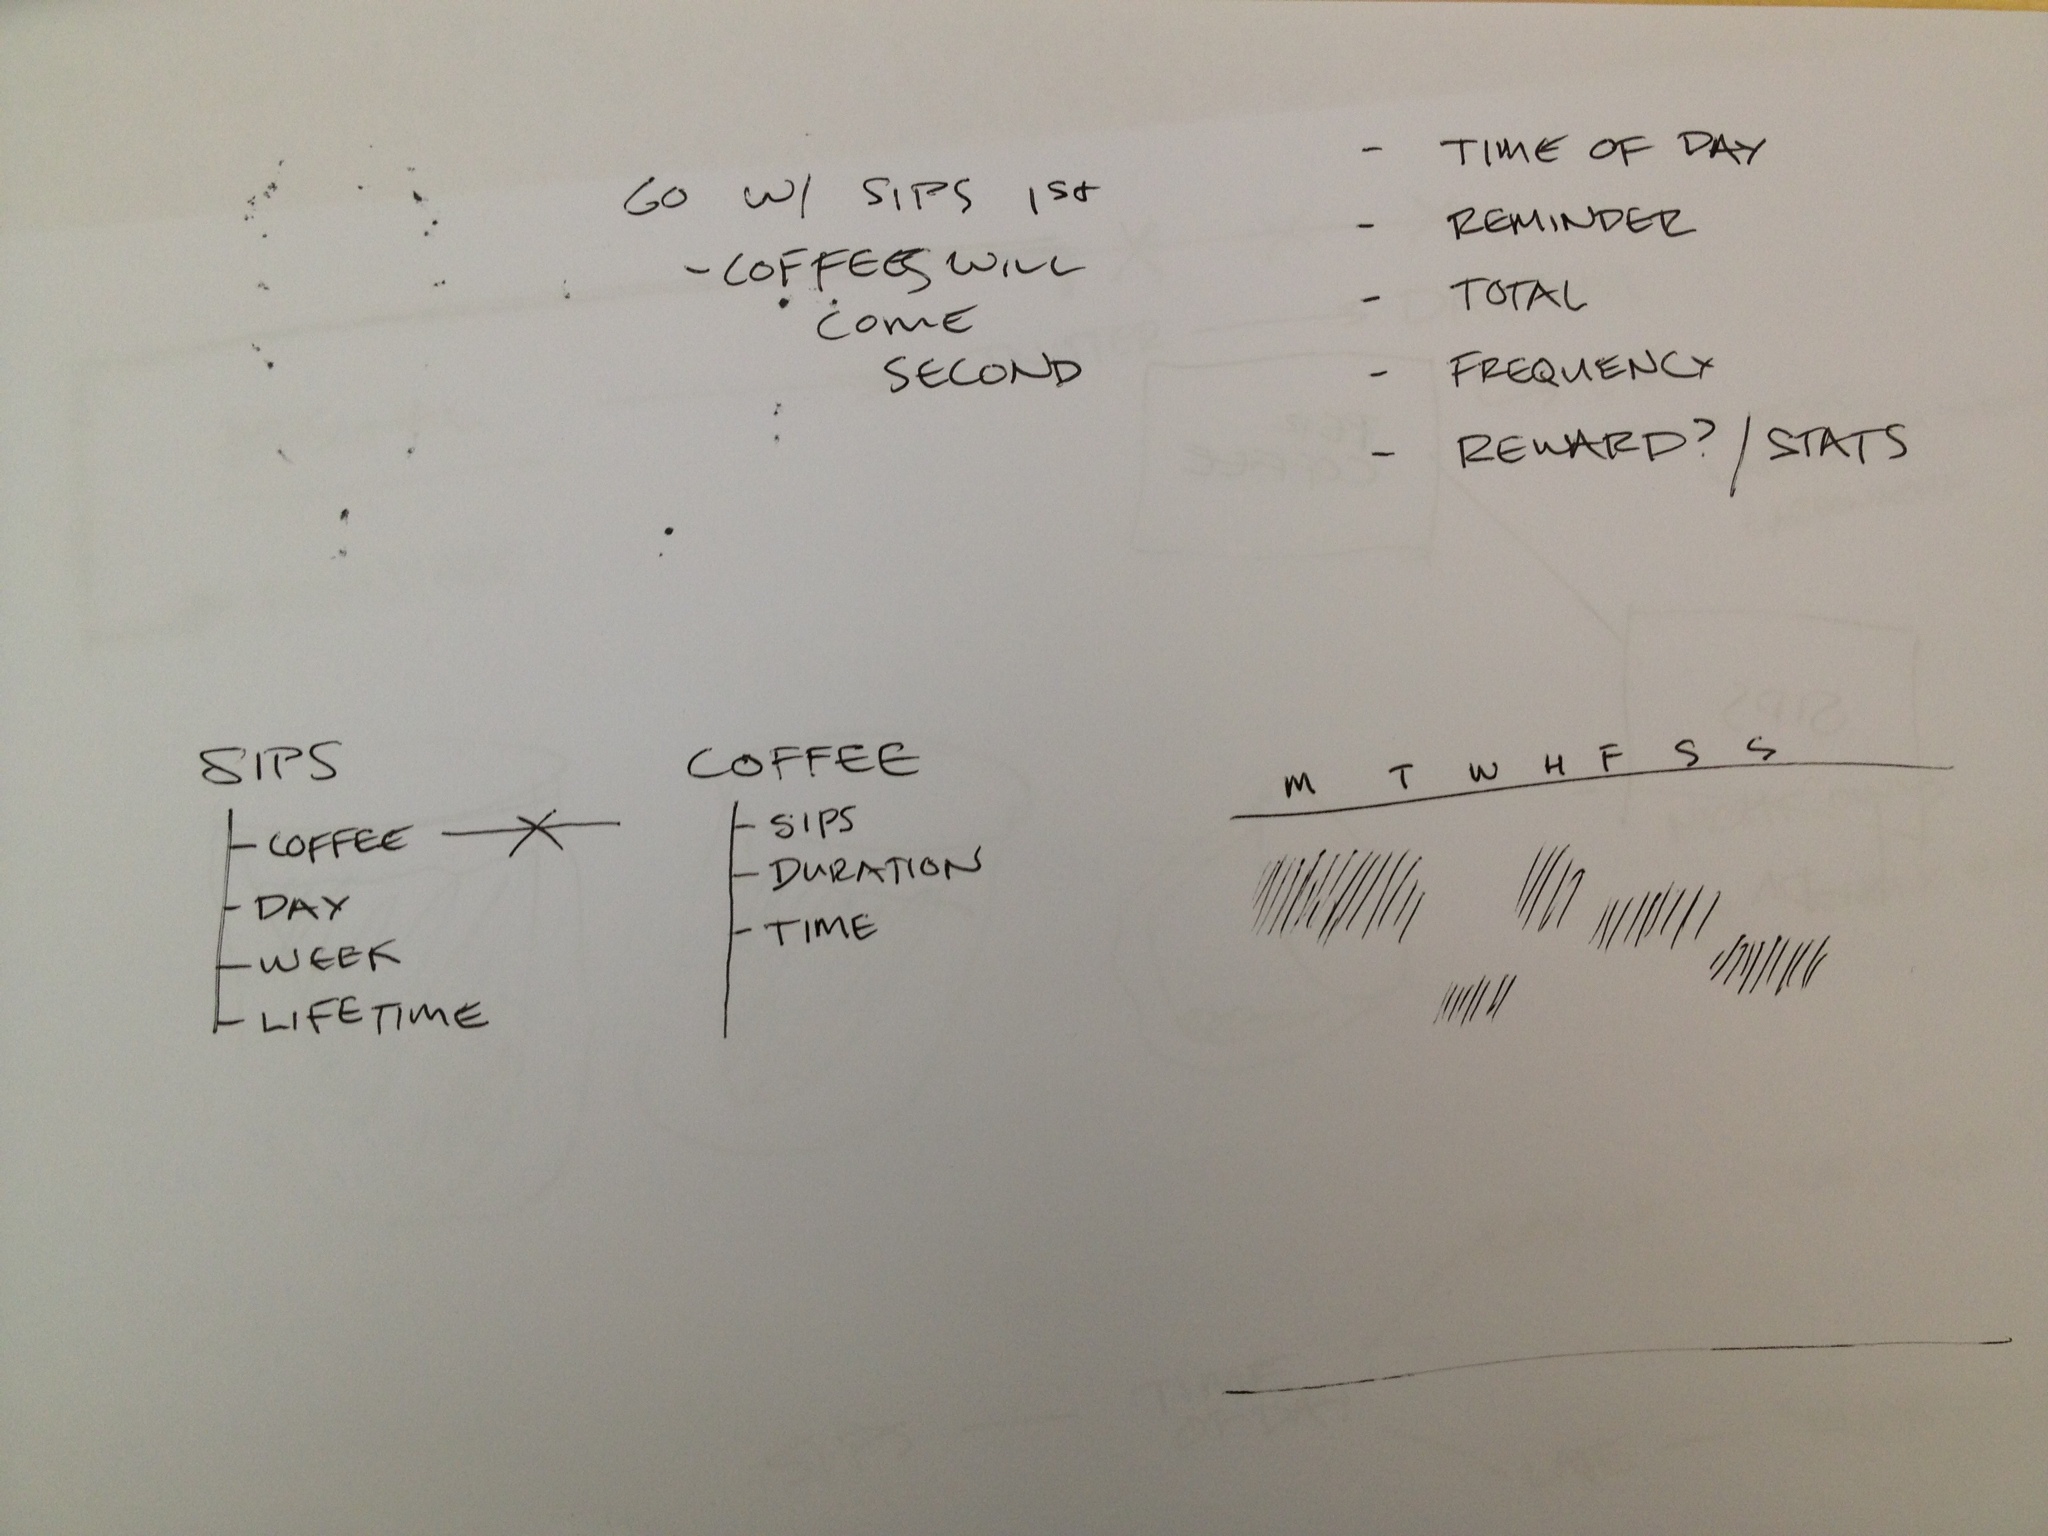 GO W/ SIPS 1st
- COFFEES WILL
COME
SECOND
- TIME OF DAY
- REMINDER
- TOTAL
- FREQUENCY
- REWARD? / STATS
SIPS
COFFEE
DAY
WEEK
LIFETIME
COFFEE
SIPS
DURATION
TIME
M T W H F S S